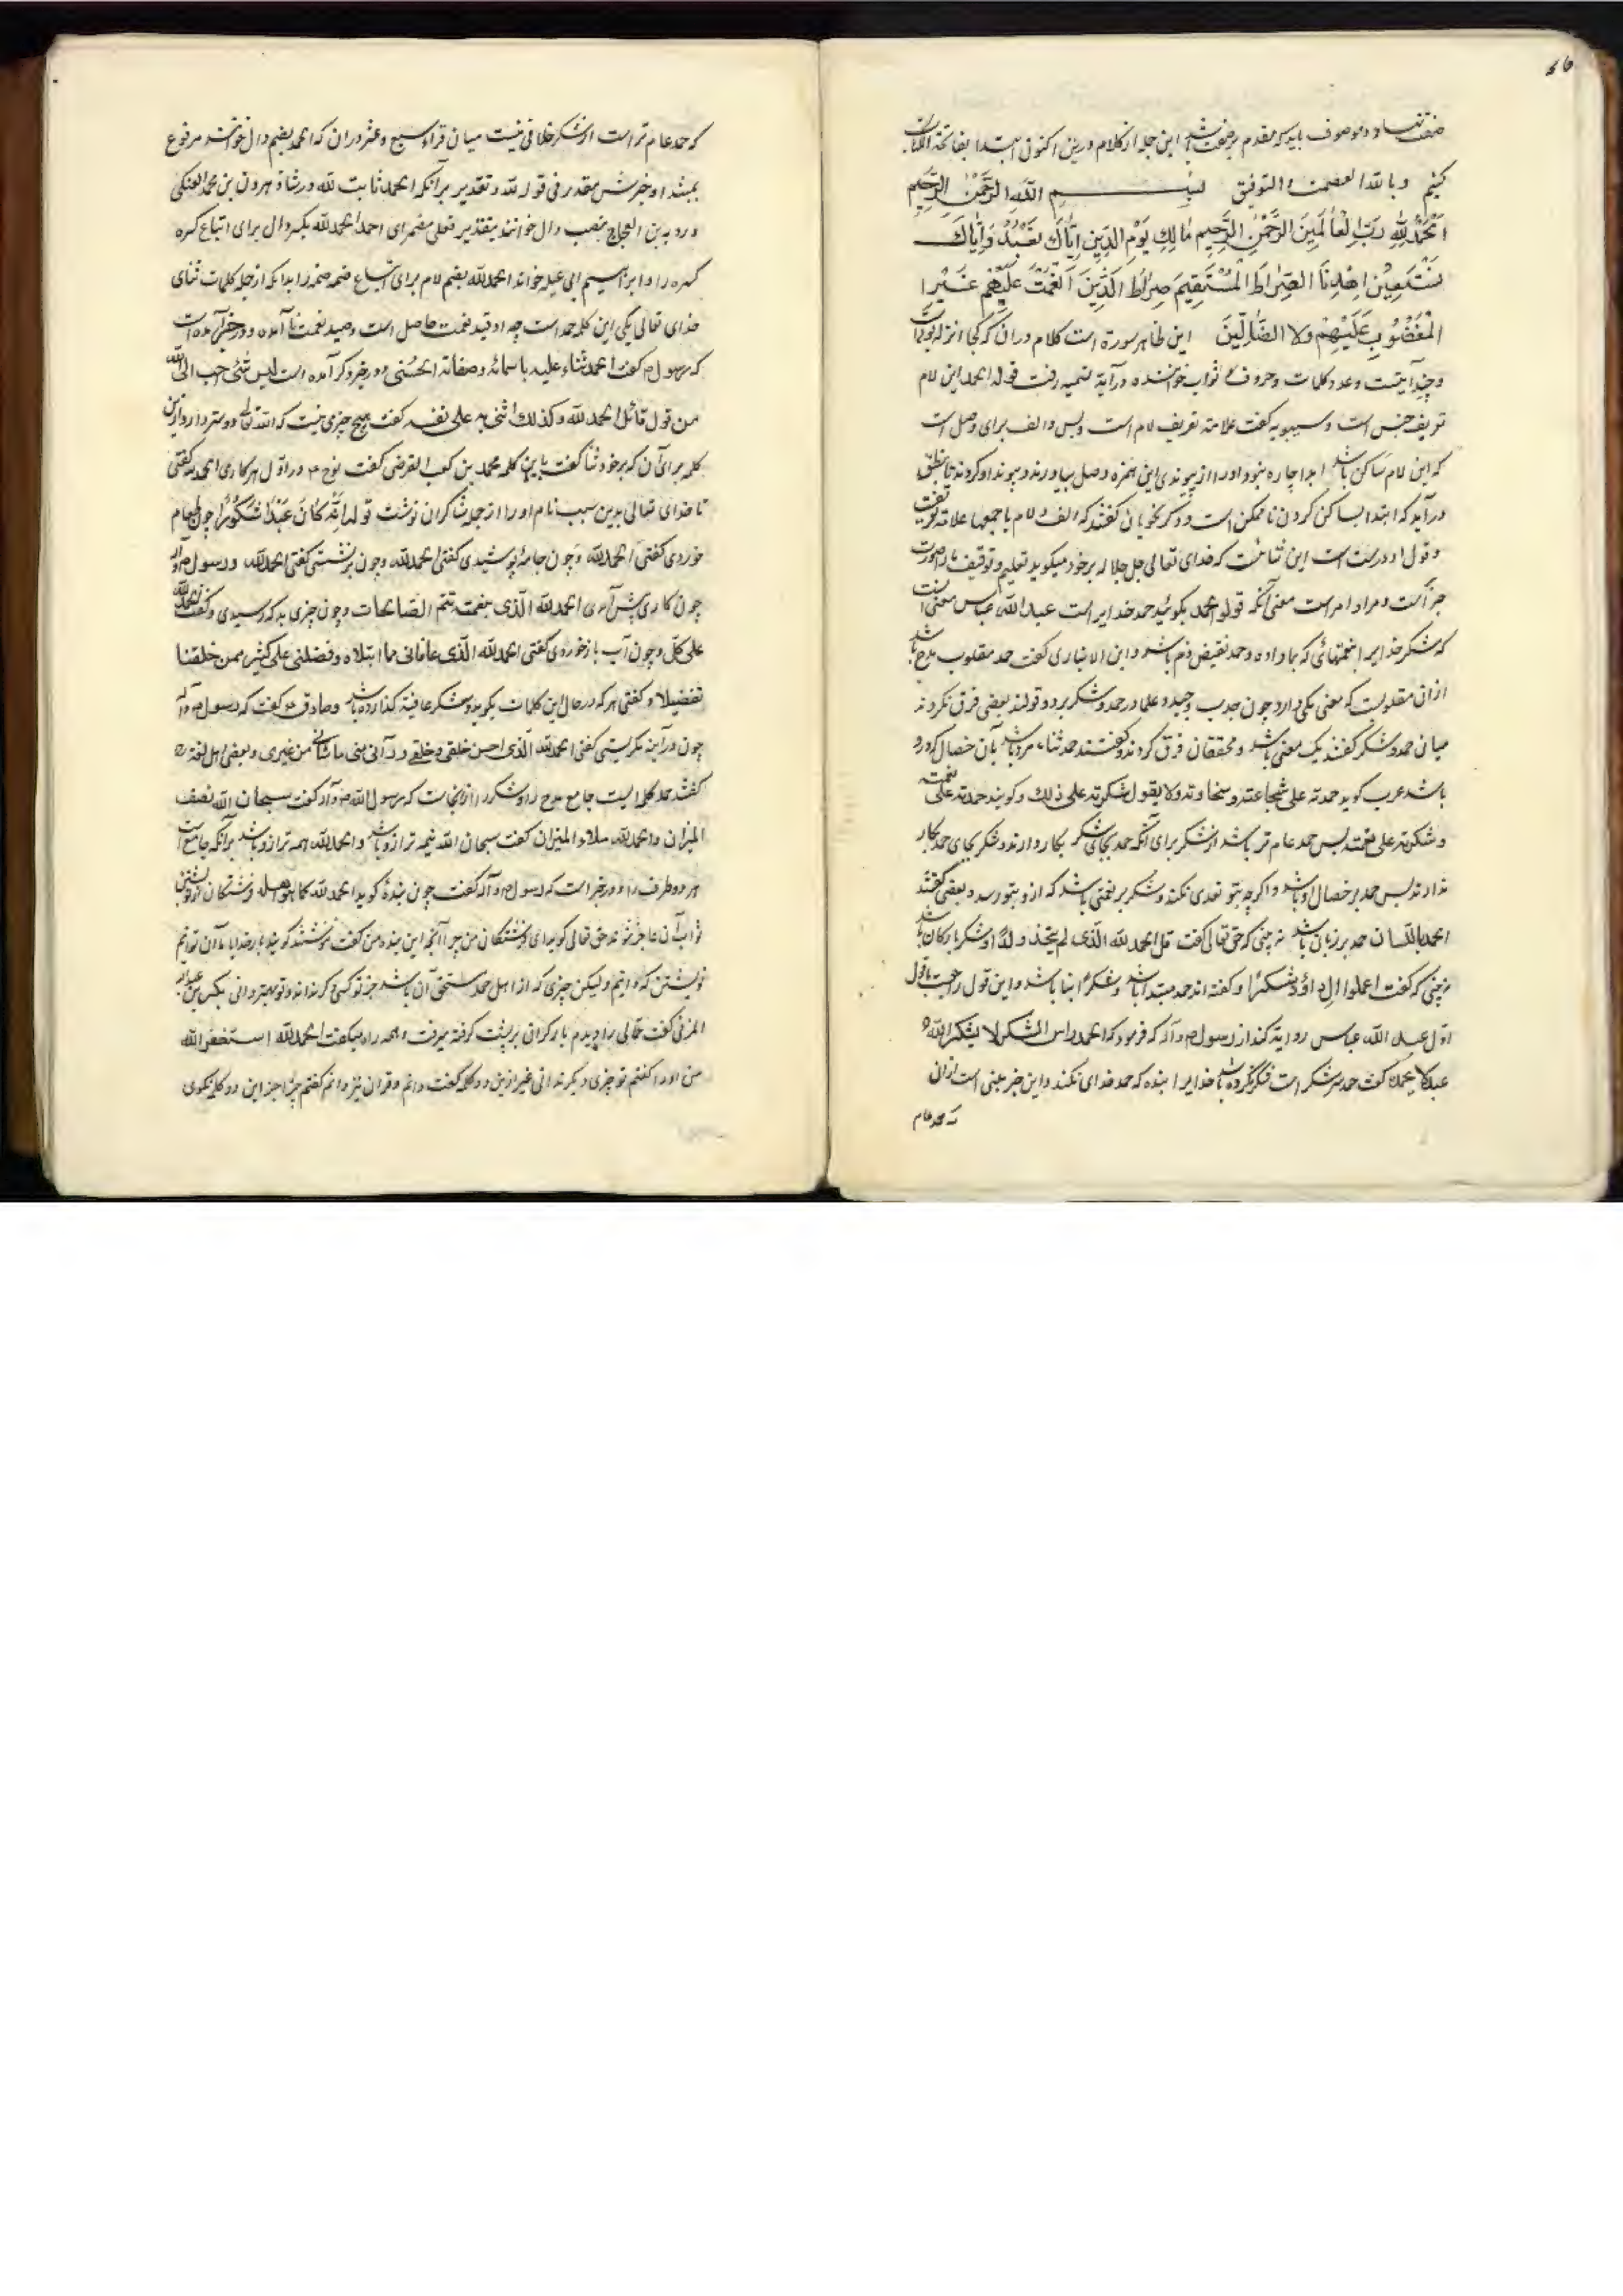 صفت نهاد و موصوف باید که مقدم بر صفت باشد این جمله از کلام درین اکنون ابتدا بفاتحة الکتاب
کنیم وبالله العصمة والتوفیق بسم الله الرحمن الرحیم
اَلْحَمْدُ لِلّٰهِ رَبِّ الْعٰالَمِینَ الرَّحْمٰنِ الرَّحِیمِ مٰالِكِ یَوْمِ الدِّینِ اِیّٰاكَ نَعْبُدُ وَاِیّٰاكَ
نَسْتَعِیْنُ اِهْدِنَا الصِّرٰاطَ الْمُسْتَقِیمَ صِرٰاطَ الَّذِینَ اَنْعَمْتَ عَلَیْهِمْ غَیْرِ ا
الْمَغْضُوبِ عَلَیْهِمْ وَلا الضّٰالِّینَ این ظاهر سورة است کلام در آن که کجا انزله بود
و چند آیتست و عدد کلمات و حروف و ثواب خواننده در آیة تسمیه رفت قوله الحمد این لام
تعریف جنس است و سیبویه گفت علامة تعریف لام است و بس و الف برای وصل است
که این لام ساکن باشد ابدا چاره نبود او را از پیوندی این همزه وصل بیاوردند و پیوند او کردند تا بنطق
در آید که ابتدا بساکن کردن ناممکن است و دگر نحویان گفتند که الف و لام باجمعها علامة تعریفست
و قول او درست است این ثنائیست که خدای تعالی جل جلاله بر خود میگوید تعلیم و توقیف ما را صورت
خبر است و مراد امر است معنی آنکه قولوا الحمد بگوئید حمد خدایراست عبدالله عباس معنی آنست
که شکر خدایرا بنعمتهائی که بما داده و حمد نقیض ذم باشد و ابن الانباری گفت حمد مقلوب مدح باشد
از آن مقلوبست که معنی یکی دارد چون جذب و جبذ و علما در حمد و شکر بر دو قولند بعضی فرق نکردند
میان حمد و شکر گفتند یک معنی باشد و محققان فرق کردند و گفتند حمد ثناء مرد باشد بآن خصال که درو
باشد عرب گوید حمدته علی شجاعته و سخاوته ولا یقول شکرته علی ذلک و گویند حمدته علی نعمته
و شکرته علی نعمته پس حمد عام تر باشد از شکر برای آنکه حمد بجای شکر بکار دارند و شکر بجای حمد بکار
ندارند پس حمد بر خصال او باشد و اگرچه بتو تعدی نکند و شکر بر نعمتی باشد که ازو بتو رسد و بعضی گفتند
الحمد باللسان حمد بر زبان باشد نه بینی که حق تعالی گفت قل الحمد لله الذی لم یتخذ ولدا و شکر بارکان باشد
نه بینی که گفت اعملوا ال داؤد شکرا و گفته اند حمد مبتدا باشد و شکر ابنا باشد و این قول راجعست با قول
اول عبد الله عباس روایة کند از رسول ص و آله که فرمود که الحمد راس الشکر لا یشکر الله
عبد لا یحمده گفت حمد سر شکر است شکر نکرده باشد خدایرا بنده که حمد خدای نکند و این خبر مبنی است بر آن
که حمد عام
که حمد عام تر است از شکر خلافی نیست میان قراء سبع و عشر در آن که الحمد بضم دال خوانند مرفوع
بمبتدا و خبرش مقدر فی قوله لله و تقدیر بر آنکه الحمد ثابت لله و در شاذ هرون بن محمد العتکی
و رؤبة بن العجاج بنصب دال خوانند بتقدیر فعلی مضمر ای احمد الحمد لله بکسر دال برای اتباع کسره
کسره را و ابراهیم ابی عبله خواند الحمد لله بضم لام برای اتباع ضمه ضمه را بدانکه از جمله کلمات ثنای
خدای تعالی یکی این کلمه حمد است چه او قید نعمت حاصل است و صید نعمت نا آمده و در خبر آمده است
که رسول ص گفت الحمد ثناء علیه باسمائه و صفاته الحسنی و در خبر دگر آمده است لیس شئ احب الی الله
من قول قائل الحمد لله و کذلک اثنی به علی نفسه گفت هیچ چیزی نیست که الله تعالی دوستر دارد ازین
کلمه برای آن که بر خود ثنا گفت باین کلمه محمد بن کعب القرضی گفت نوح ع در اول هر کاری الحمد لله گفتی
تا خدای تعالی بدین سبب نام او را از جمله شاکران نوشت قوله اِنَّهُ کٰانَ عَبْدًا شَکُوْرًا چون طعام
خوردی گفتی الحمد لله و چون جامه پوشیدی گفتی الحمد لله و چون برنشستی گفتی الحمد لله و رسول ص و آله
چون کاری پیش آمدی الحمد لله الذی بنعمته تتم الصالحات و چون چیزی بد که رسیدی و گفت الحمد لله
علی کل و چون آب باز خوردی گفتی الحمد لله الذی عافانی مما ابتلاه و فضلنی علی کثیر ممن خلقنا
تفضیلا و گفتی هر که در حال این کلمات بگوید و شکر عافیة گذارده باشد و صادق ع گفت که رسول ص و آله
چون در آینه نگریستی گفتی الحمد لله الذی احسن خلقی و خلقی و زانی منی ما شانی من غیری و بعضی اهل لغة
گفتند حمد کلمه ایست جامع مدح را و شکر را از اینجاست که رسول الله ص و آله گفت سبحان الله نصف
المیزان و الحمد لله ملاء المیزان گفت سبحان الله نیمه ترازو باشد و الحمد لله همه ترازو باشد بر آنکه جامع است
هر دو طرف را و در خبر است که رسول ص و آله گفت چون بنده گوید الحمد لله کما هو اهله فرشتگان از نوشتن
ثواب آن عاجز شوند حق تعالی گوید ای فرشتگان من چرا آنچه این بنده من گفت ننوشتند گویند بار خدایا ما آن نتوانیم
نوشتن که دانیم و لیکن چیزی که از اهل حمد مستحق آن باشد جز تو کسی دگر نداند و تو بهتر دانی بکر بن عبدالله
المزنی گفت حمالی را دیدم بار گرانی بر پشت گرفته میرفت و همه راه میگفت الحمد لله استغفر الله
من او را گفتم تو چیزی دیگر ندانی غیر ازین دو کلمه گفت دانم و قران نیز دانم گفتم چرا جز این دو کلمه نگوی